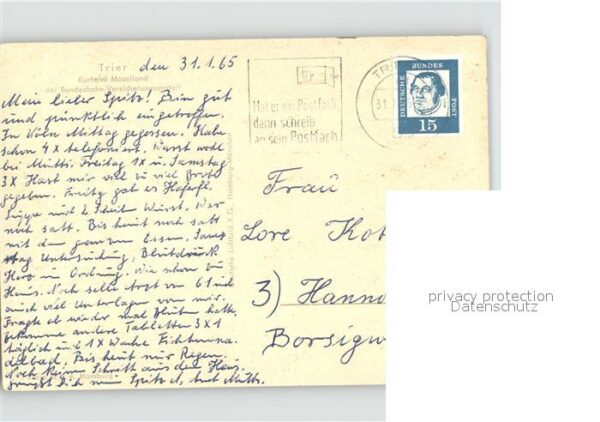 Trier den 31.1.65
Kurheim Moselland
der Bundesbahn-Versicherungsanstalt
Mein lieber Spitz! Bin gut
und pünktlich eingetroffen.
In Köln Mittag gegessen. Habe
schon 4 x telefoniert. Warst wohl
bei Mutti. Freitag 1 x u. Samstag
3 X Hast mir viel zu viel Brote
gegeben. Freitg gab es Haferfl.
Suppe und 2 Wurst. War
noch satt. Bis heut noch satt
mit dem ganzen Essen. Sams
tag Untersuchung, Blutdruck
Herz in Ordnung. Wie schon zu
Haus. Noch selbe Arzt von 61 und
auch viel Unterlagen von mir.
Fragte ob wieder mal Bluten hatte
bekomme andere Tabletten 3 X 1
täglich und 1 X Woche Fichtenna
delbad. Bis heut nur Regen.
Noch keinen Schritt aus dem Haus.
grüßt Dich mein Spitz
Hat er ein Postfach,
dann schreib
an sein Postfach
TRI
31.
DEUTSCHE BUNDES POST
15
Frau
Lore Kot
3) Hanno
Borsigw
Hamburg
privacy protection
Datenschutz